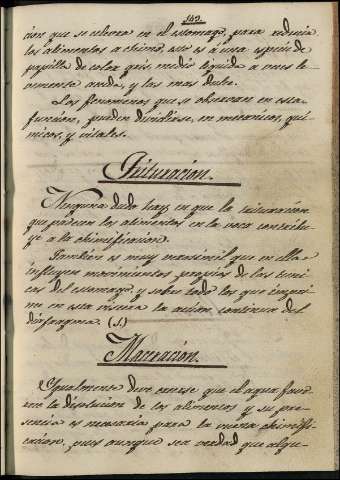 149.
cion que se elavora en el estomago, para reducir
los alimentos a chimo, esto es á una especie de
papilla de color gris, medio liquida a veces le-
vemente acida, y las mas dulce.
Los fenomenos que se observan en esta
funcion, pueden dividirse, en mecanicos, qui-
micos, y vitales.
Trituracion.
Ninguna duda hay, en que la trituracion
que padecen los alimentos en la voca contribu-
ye a la chimificacion.
Tambien es muy verosimil que en ella
influyen movimientos propios de las tuni-
cas del estomago, y sobre todo los que impri-
me en esta viscera la accion continua del
diafragma. (1.)
Maceracion.
Igualmente deve creerse que el agua favo-
rece la disolucion de los alimentos y su pre-
sencia es necesaria para la buena chimifi-
cacion, pues aunque sea verdad que algu-